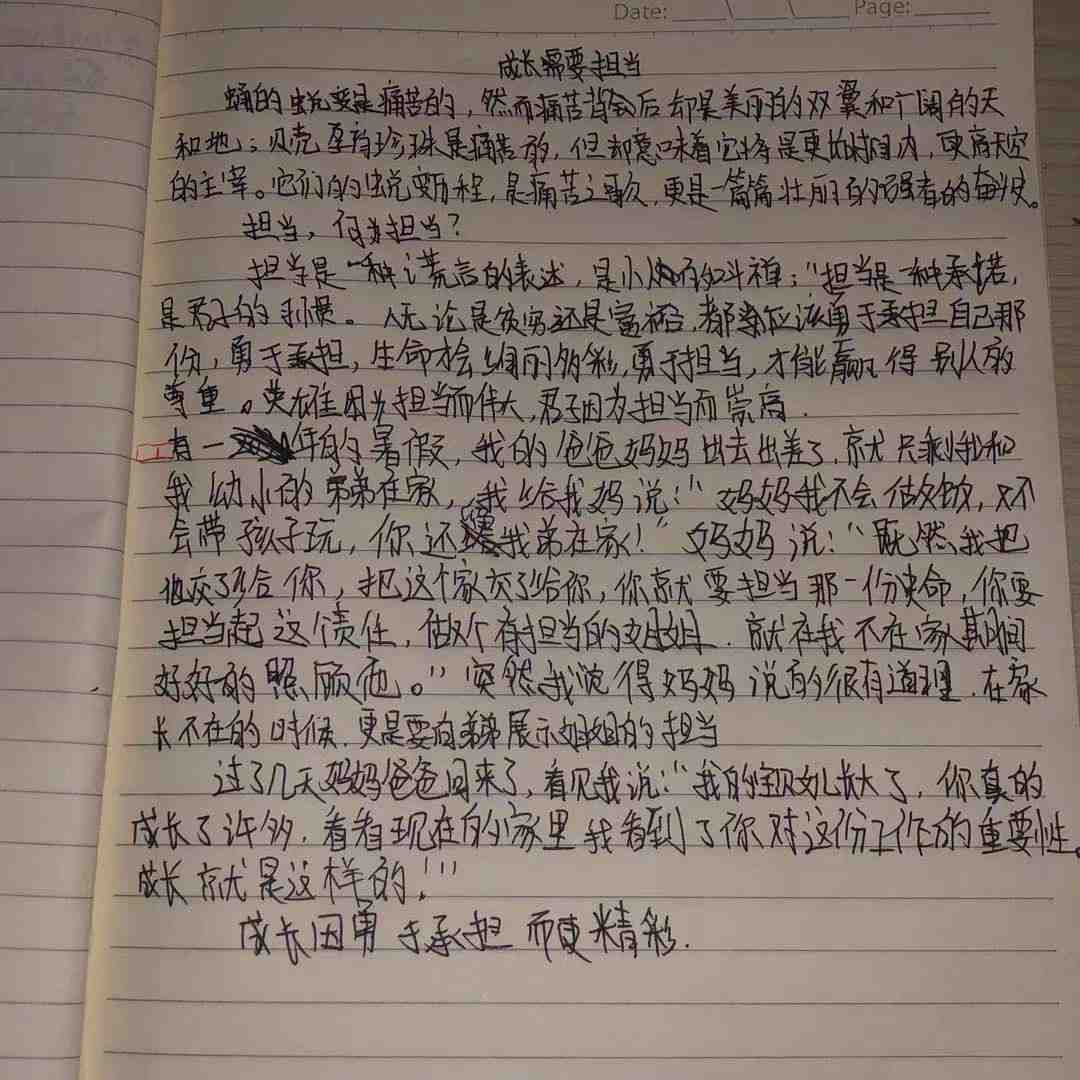 Date: Page:
成长需要担当
蛹的蜕变是痛苦的，然而痛苦背后却是美丽的双翼和广阔的天
和地；贝壳孕育珍珠是痛苦的，但却意味着它将是更 时间内，更高天空
的主宰。它们的蜕变历程，是痛苦之歌，更是一篇篇壮丽的强者的奋斗史。
担当，何为担当？
担当是一种谎言的表述，是小 的 ；"担当是一种承诺，
是君子的习惯。人无论是贫穷还是富裕，都 应该勇于承担自己那
份，勇于承担，生命才会绚丽多彩，勇于担当，才能赢得别人的
尊重。英雄因为担当而伟大，君子因为担当而崇高.
有一 年的暑假，我的爸爸妈妈出去出差了，就只剩我和
我幼小的弟弟在家，我给我妈说："妈妈我不会做饭，又不
会带孩子玩，你还 我弟在家！"妈妈说："既然我把
他交了给你，把这个家交了给你，你就要担当那一份使命，你要
担当起这个责任，做个有担当的姐姐．就在我不在家期间
好好的照顾他。"突然我觉得妈妈说的很有道理．在家
长不在的时候．更是要向弟弟展示姐姐的担当
过了几天妈妈爸爸回来了，看见我说："我的宝贝女儿长大了，你真的
成长了许多．看看现在的家里我看到了你对这份工作的重要性。
成长就是这样的！"
成长因勇于承担而更精彩.